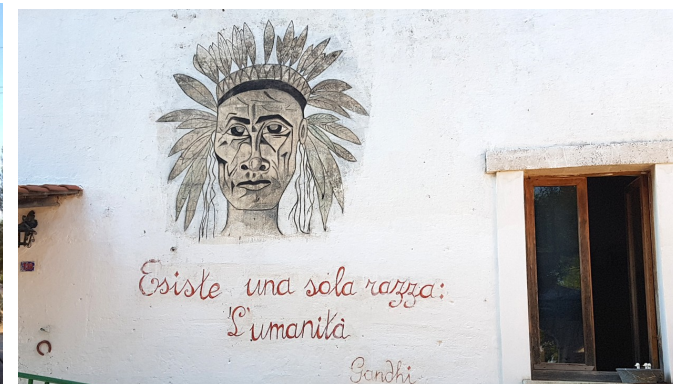 Esiste una sola razza:
L'umanità
Gandhi